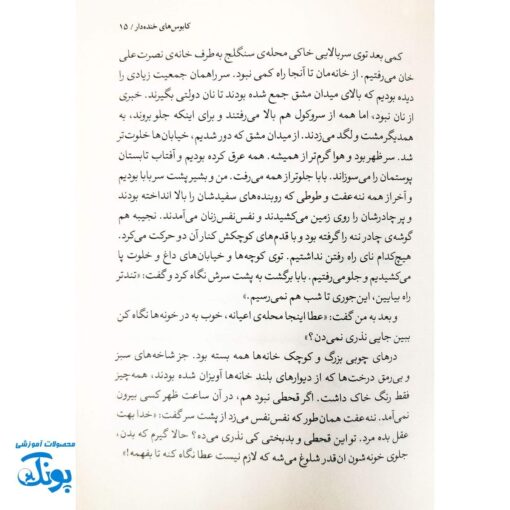 کابوس‌های خنده‌دار / ۱۵
کمی بعد توی سربالایی خاکی محله‌ی سنگلج به‌طرف خانه‌ی نصرت‌علی
خان می‌رفتیم. از خانه‌مان تا آنجا راه کمی نبود. سر راهمان جمعیت زیادی را
دیده بودیم که بالای میدان مشق جمع شده بودند تا نان دولتی بگیرند. خبری
از نان نبود، اما همه از سروکول هم بالا می‌رفتند و برای اینکه جلو بروند، به
همدیگر مشت و لگد می‌زدند. از میدان مشق که دور شدیم، خیابان‌ها خلوت‌تر
شد. سر ظهر بود و هوا گرم‌تر از همیشه. همه عرق کرده بودیم و آفتاب تابستان
پوستمان را می‌سوزاند. بابا جلوتر از همه می‌رفت. من و بشیر پشت سر بابا بودیم
و آخر از همه ننه‌عفت و طوطی که روبنده‌های سفیدشان را بالا انداخته بودند
و پر چادرشان را روی زمین می‌کشیدند و نفس‌نفس‌زنان می‌آمدند. نجیبه هم
گوشه‌ی چادر ننه را گرفته بود و با قدم‌های کوچکش کنار آن دو حرکت می‌کرد.
هیچ‌کدام نای راه رفتن نداشتیم. توی کوچه‌ها و خیابان‌های داغ و خلوت پا
می‌کشیدیم و جلو می‌رفتیم. بابا برگشت به پشت سرش نگاه کرد و گفت: «تندتر
راه بیایین، این‌جوری تا شب هم نمی‌رسیم.»
و بعد به من گفت: «عطا اینجا محله‌ی اعیانه، خوب به در خونه‌ها نگاه کن
ببین جایی نذری نمی‌دن؟»
درهای چوبی بزرگ و کوچک خانه‌ها همه بسته بود. جز شاخه‌های سبز
و بی‌رمق درخت‌ها که از دیوارهای بلند خانه‌ها آویزان شده بودند، همه‌چیز
فقط رنگ خاک داشت. اگر قحطی نبود هم، در آن ساعت ظهر کسی بیرون
نمی‌آمد. ننه‌عفت همان‌طور که نفس‌نفس می‌زد از پشت سر گفت: «خدا بهت
عقل بده مرد. تو این قحطی و بدبختی کی نذری می‌ده؟ حالا گیرم که بدن،
جلوی خونه‌شون ان‌قدر شلوغ می‌شه که لازم نیست عطا نگاه کنه تا بفهمه!»
محصولات آموزشی
پونک